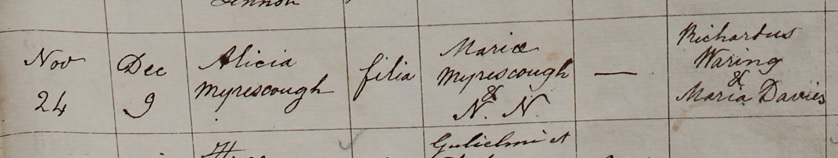 Nov
24
Dec
9
Alicia
Myrescough
filia
Mariæ
Myrescough
&
N. N.
—
Richardus
Waring
&
Maria Davies
Gulielmi et